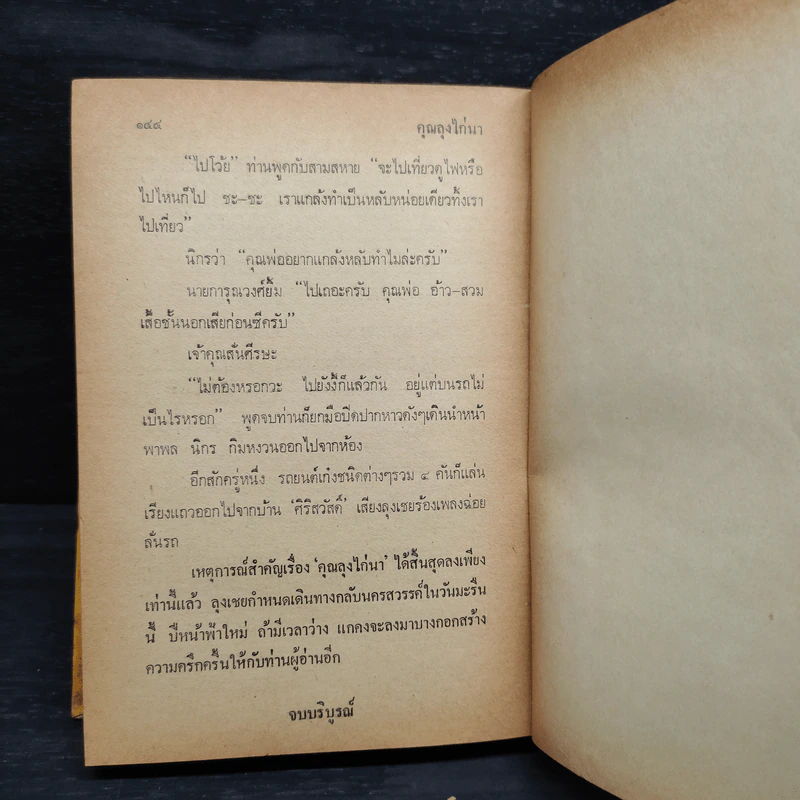 ๑๙๙ คุณลุงไก่นา
“ไปโว้ย” ท่านพูดกับสามสหาย “จะไปเที่ยวดูไฟหรือ
ไปไหนก็ไป ชะ-ชะ เราแกล้งทำเป็นหลับหน่อยเดียวทิ้งเรา
ไปเที่ยว”
นิกรว่า “คุณพ่ออยากแกล้งหลับทำไมล่ะครับ”
นายการุณวงศ์ยิ้ม “ไปเถอะครับ คุณพ่อ อ้าว-สวม
เสื้อชั้นนอกเสียก่อนซีครับ”
เจ้าคุณสั่นศีรษะ
“ไม่ต้องหรอกวะ ไปยังงี้ก็แล้วกัน อยู่แต่บนรถไม่
เป็นไรหรอก” พูดจบท่านก็ยกมือปิดปากหาวดังๆเดินนำหน้า
พาพล นิกร กิมหงวนออกไปจากห้อง
อีกสักครู่หนึ่ง รถยนต์เก๋งชนิดต่างๆรวม ๔ คันก็แล่น
เรียงแถวออกไปจากบ้าน ‘ศิริสวัสดิ์’ เสียงลุงเชยร้องเพลงฉ่อย
ลั่นรถ
เหตุการณ์สำคัญเรื่อง ‘คุณลุงไก่นา’ ได้สิ้นสุดลงเพียง
เท่านี้แล้ว ลุงเชยกำหนดเดินทางกลับนครสวรรค์ในวันมะรืน
นี้ ปีหน้าฟ้าใหม่ ถ้ามีเวลาว่าง แกคงจะลงมาบางกอกสร้าง
ความครึกครื้นให้กับท่านผู้อ่านอีก
จบบริบูรณ์